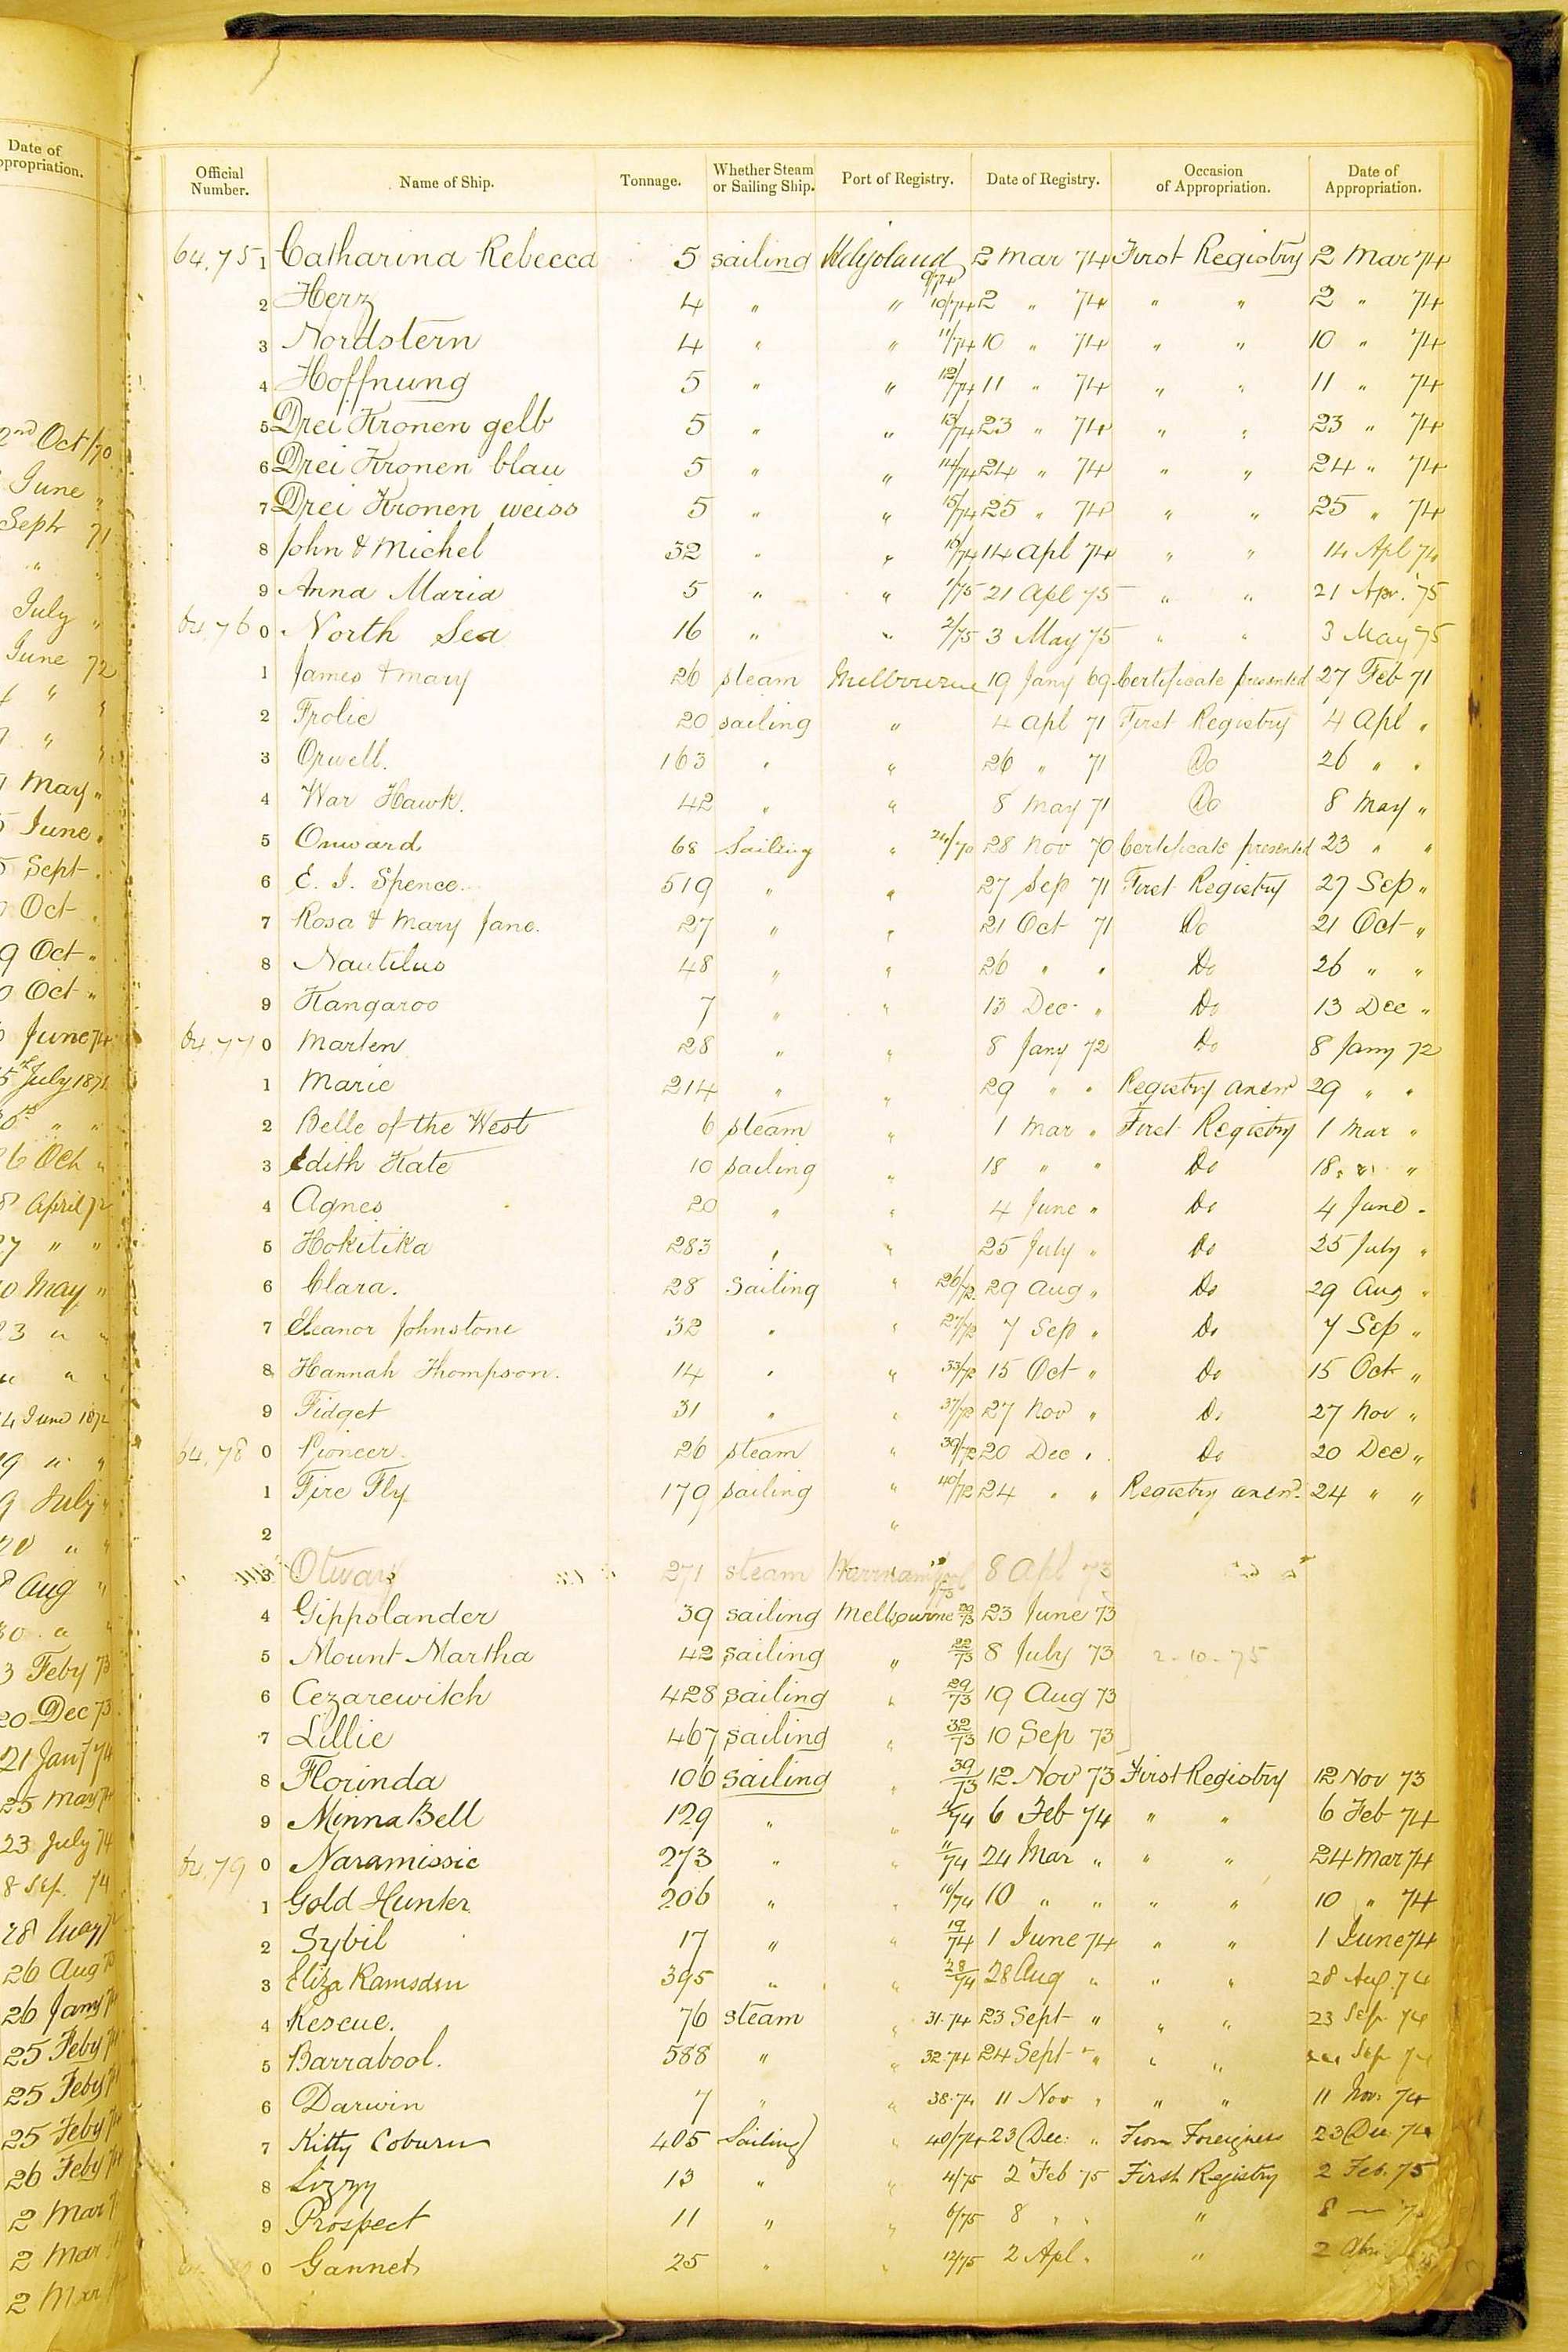 Date of
ppropriation.
2nd Oct/70
June "
Sept 71
" "
July "
June 72
" "
" "
May "
June "
Sept "
Oct "
9 Oct "
0 Oct "
June 74
5 July 1871
" "
26 Oct "
8 April 72
27 " "
10 May "
23 " "
" "
4 June 1872
19 " "
9 July "
" "
Aug "
30 " "
3 Feby 73
20 Dec 73
21 Jany 74
25 May 74
23 July 74
8 Sep. 74
28 May
26 Aug
26 Jany
25 Feby
25 Feby
25 Feby
26 Feby
2 Mar
2 Mar
2 Mar
Official Number. Name of Ship. Tonnage. Whether Steam or Sailing Ship. Port of Registry. Date of Registry. Occasion of Appropriation. Date of Appropriation.
64,75 1 Catharina Rebecca 5 sailing Heligoland 9/74 2 Mar 74 First Registry 2 Mar 74
2 Herz 4 " " 10/74 2 " 74 " " 2 " 74
3 Nordstern 4 " " 11/74 10 " 74 " " 10 " 74
4 Hoffnung 5 " " 12/74 11 " 74 " " 11 " 74
5 Drei Kronen gelb 5 " " 13/74 23 " 74 " " 23 " 74
6 Drei Kronen blau 5 " " 14/74 24 " 74 " " 24 " 74
7 Drei Kronen weiss 5 " " 15/74 25 " 74 " " 25 " 74
8 John & Michel 32 " " 16/74 14 Apl 74 " " 14 Apl 74
9 Anna Maria 5 " " 1/75 21 Apl 75 " " 21 Apr. 75
64,76 0 North Sea 16 " " 2/75 3 May 75 " " 3 May 75
1 James & Mary 26 steam Melbourne 19 Jany 69 Certificate presented 27 Feb 71
2 Frolic 20 sailing " 4 Apl 71 First Registry 4 Apl "
3 Orwell. 163 " " 26 " 71 Do 26 " "
4 War Hawk. 42 " " 8 May 71 Do 8 May "
5 Onward 68 Sailing " 24/70 28 Nov 70 Certificate presented 23 " "
6 E. I. Spence. 519 " " 27 Sep 71 First Registry 27 Sep "
7 Rosa & Mary Jane. 27 " " 21 Oct 71 Do 21 Oct "
8 Nautilus 48 " " 26 " " Do 26 " "
9 Kangaroo 7 " " 13 Dec " Do 13 Dec "
64,77 0 Marten 28 " " 8 Jany 72 Do 8 Jany 72
1 Marie 214 " " 29 " " Registry anew 29 " "
2 Belle of the West 6 steam " 1 Mar " First Registry 1 Mar "
3 Edith Kate 10 sailing " 18 " " Do 18 " "
4 Agnes 20 " " 4 June " Do 4 June "
5 Hokitika 283 " " 25 July " Do 25 July "
6 Clara. 28 Sailing " 26/72 29 Aug " Do 29 Aug "
7 Eleanor Johnstone 32 " " 27/72 7 Sep " Do 7 Sep "
8 Hannah Thompson. 14 " " 33/72 15 Oct " Do 15 Oct "
9 Fidget 31 " " 37/72 27 Nov " Do 27 Nov "
64,78 0 Pioneer 26 steam " 39/72 20 Dec " Do 20 Dec "
1 Fire Fly 179 sailing " 40/72 24 " " Registry anew. 24 " "
2 "
3 Otway 271 steam Warrnambool 1/73 8 Apl 73
4 Gippslander 39 sailing Melbourne 20/73 23 June 73
5 Mount Martha 42 sailing " 22/73 8 July 73 2-10-75
6 Cezarewitch 428 sailing " 29/73 19 Aug 73
7 Lillie 467 sailing " 32/73 10 Sep 73
8 Florinda 106 sailing " 39/73 12 Nov 73 First Registry 12 Nov 73
9 Minna Bell 129 " " /74 6 Feb 74 " " 6 Feb 74
64,79 0 Naramissic 273 " " 11/74 24 Mar " " " 24 Mar 74
1 Gold Hunter 206 " " 10/74 10 " " " " 10 " 74
2 Sybil 17 " " 19/74 1 June 74 " " 1 June 74
3 Eliza Ramsden 395 " " 28/74 28 Aug " " " 28 Aug. 74
4 Rescue. 76 steam " 31.74 23 Sept " " " 23 Sep. 74
5 Barrabool. 588 " " 32.74 24 Sept " " " Sep 74
6 Darwin 7 " " 38.74 11 Nov " " " 11 Nov. 74
7 Kitty Coburn 405 Sailing " 40/74 23 Dec. " From Foreigners 23 Dec 74
8 Lizzy 13 " " 4/75 2 Feb 75 First Registry 2 Feb. 75
9 Prospect 11 " " 6/75 8 " " " 8 — 75
0 Gannet 25 " " 12/75 2 Apl " " 2 Apr